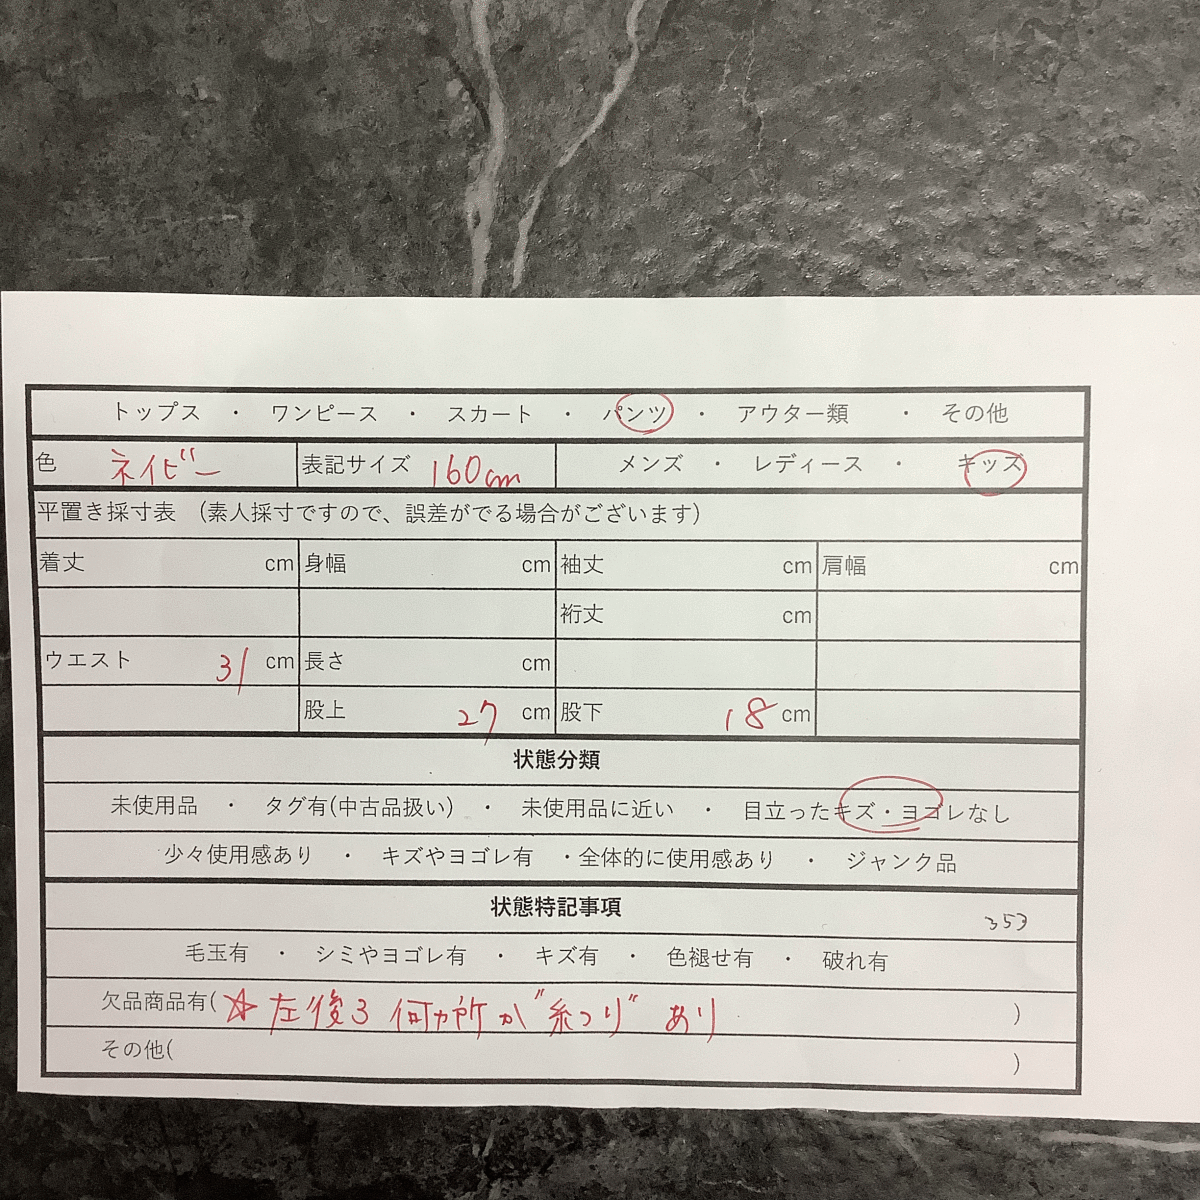 トップス ・ ワンピース ・ スカート ・ パンツ ・ アウター類 ・ その他
色 ネイビー 表記サイズ 160cm メンズ ・ レディース ・ キッズ
平置き採寸表 （素人採寸ですので、誤差がでる場合がございます）
着丈 cm 身幅 cm 袖丈 cm 肩幅 cm
裄丈 cm
ウエスト 31 cm 長さ cm
股上 27 cm 股下 18 cm
状態分類
未使用品 ・ タグ有(中古品扱い) ・ 未使用品に近い ・ 目立ったキズ・ヨゴレなし
少々使用感あり ・ キズやヨゴレ有 ・全体的に使用感あり ・ ジャンク品
状態特記事項 353
毛玉有 ・ シミやヨゴレ有 ・ キズ有 ・ 色褪せ有 ・ 破れ有
欠品商品有(☆左後ろ 何カ所か"糸つり"あり )
その他( )